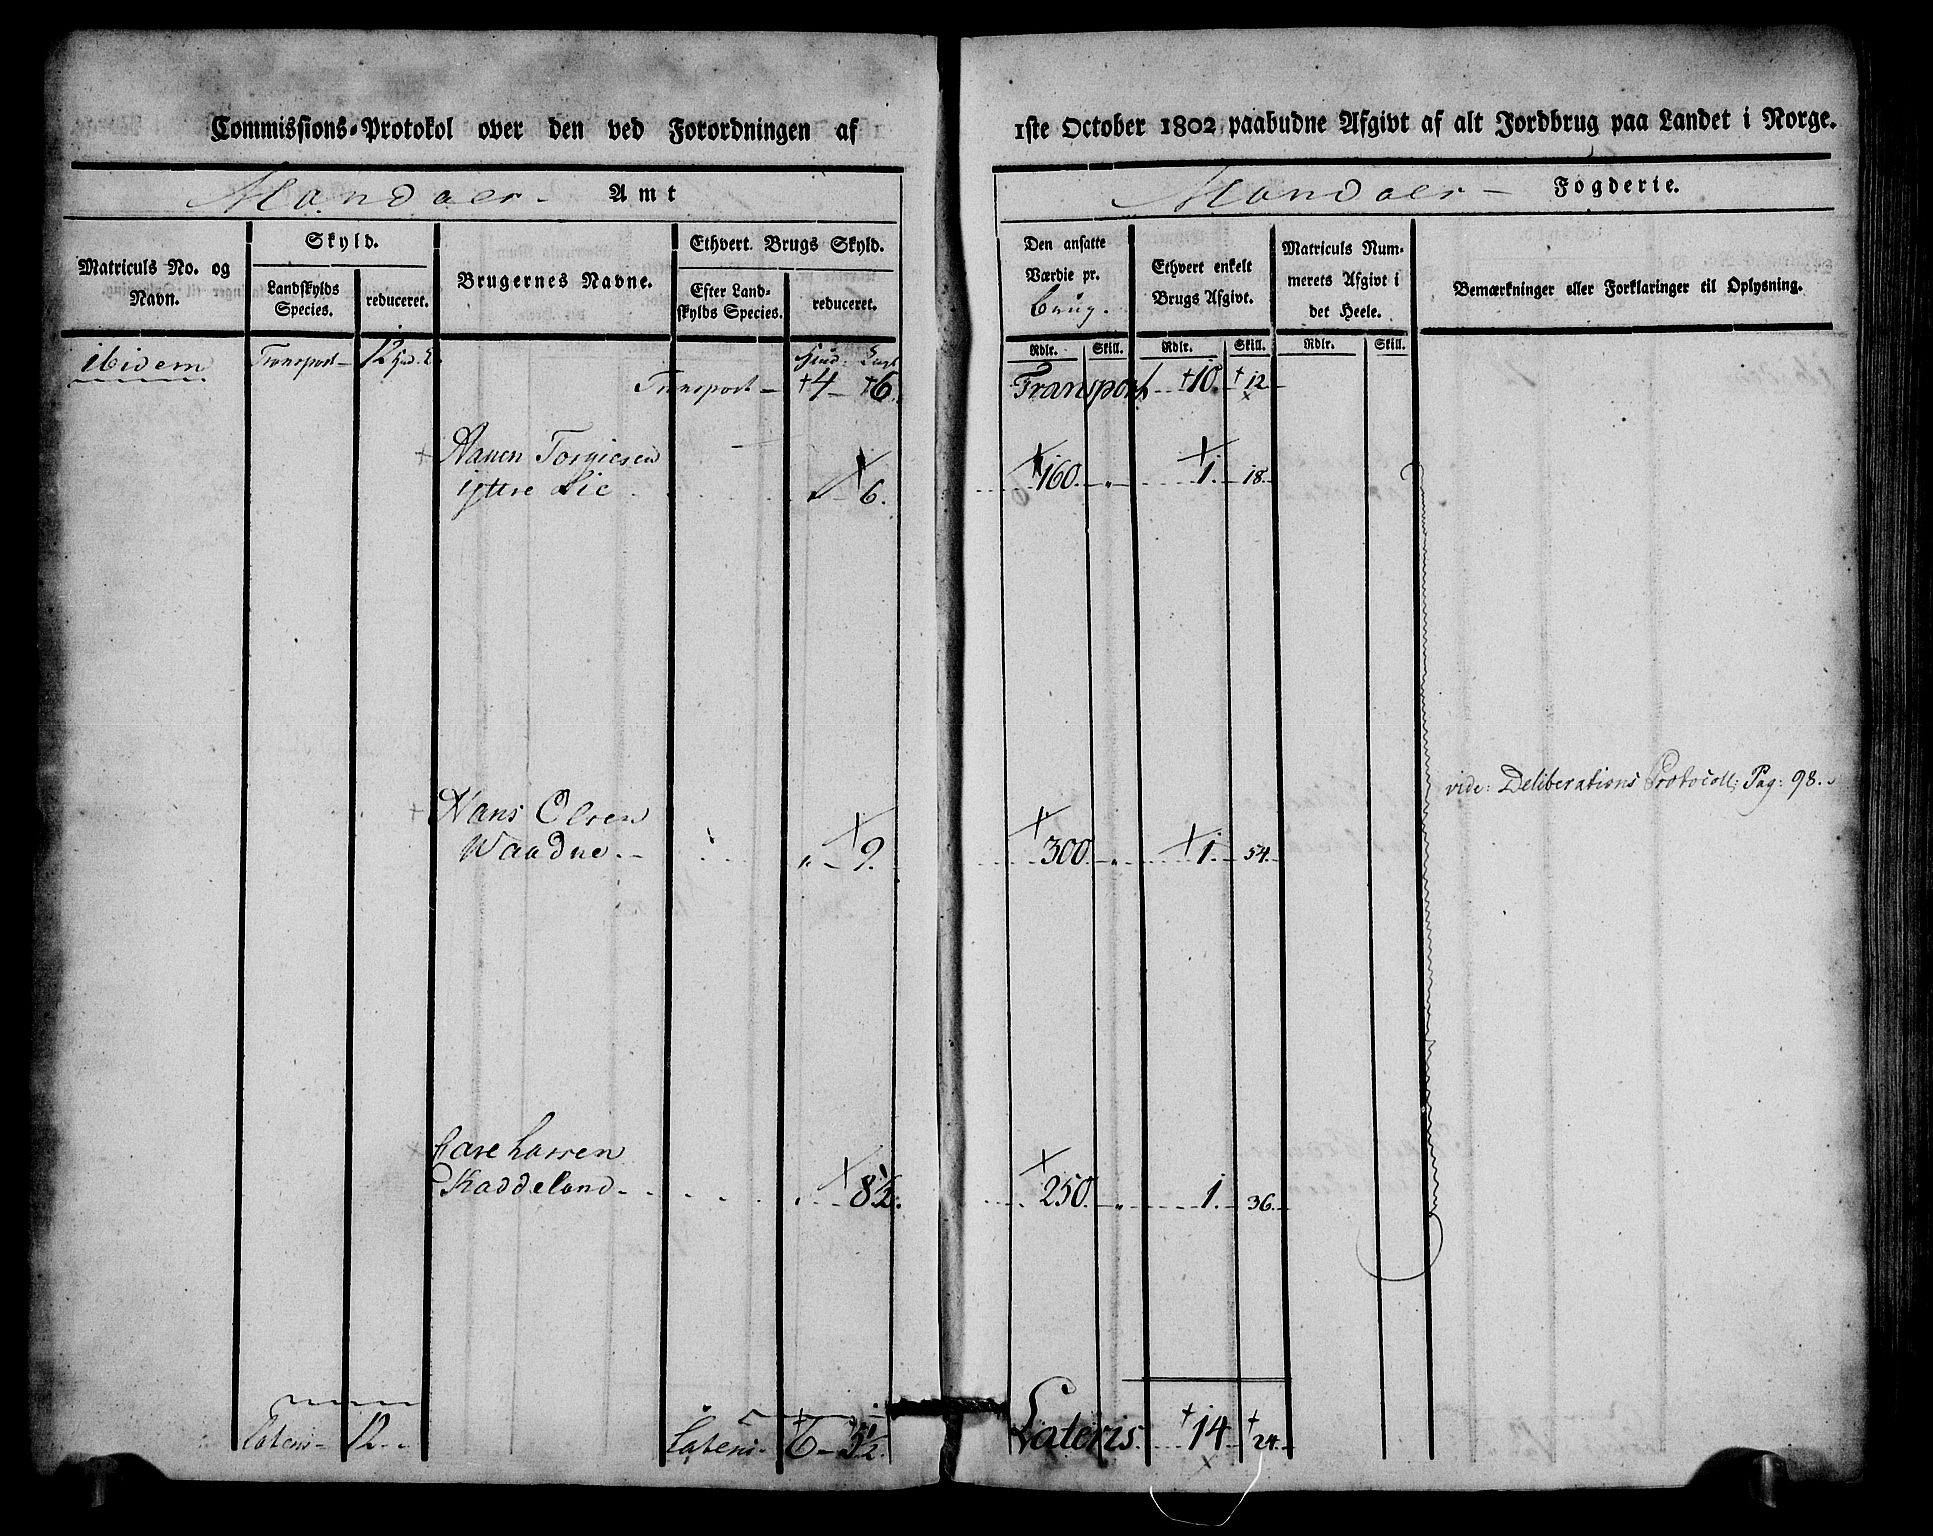 Commissions-Protokol over den ved Forordningen af 1ste October 1802 paabudne Afgivt af alt Jordbrug paa Landet i Norge.
Mandaers Amt
Mandaers Fogderie.
Matriculs No. og Navn.
Skyld.
Landskylds Species.
reduceret.
Brugernes Navne.
Ethvert Brugs Skyld.
Efter Landskylds Species.
reduceret.
Den ansatte Værdie pr. brug.
Ethvert enkelt Brugs Afgivt.
Matriculs Nummerets Afgivt i det Heele.
Bemærkninger eller Forklaringer til Oplysning.
Rdlr. Skill. Rdlr. Skill. Rdlr. Skill.
ibidem Transport 12 hud. Transport 4 6 Transport 10. 12
Aanen Torgiersen
yttre Lie 6. 160. " 1. 18.
vide: Deliberations Protocoll: Pag: 98.
Hans Olsen
Waadne. " 9. 300. " 1. 54.
Lars
Kaddeland 8½. 250. " 1. 36.
Lateris 12. Lateris 6 5½. Lateris 14. 24.